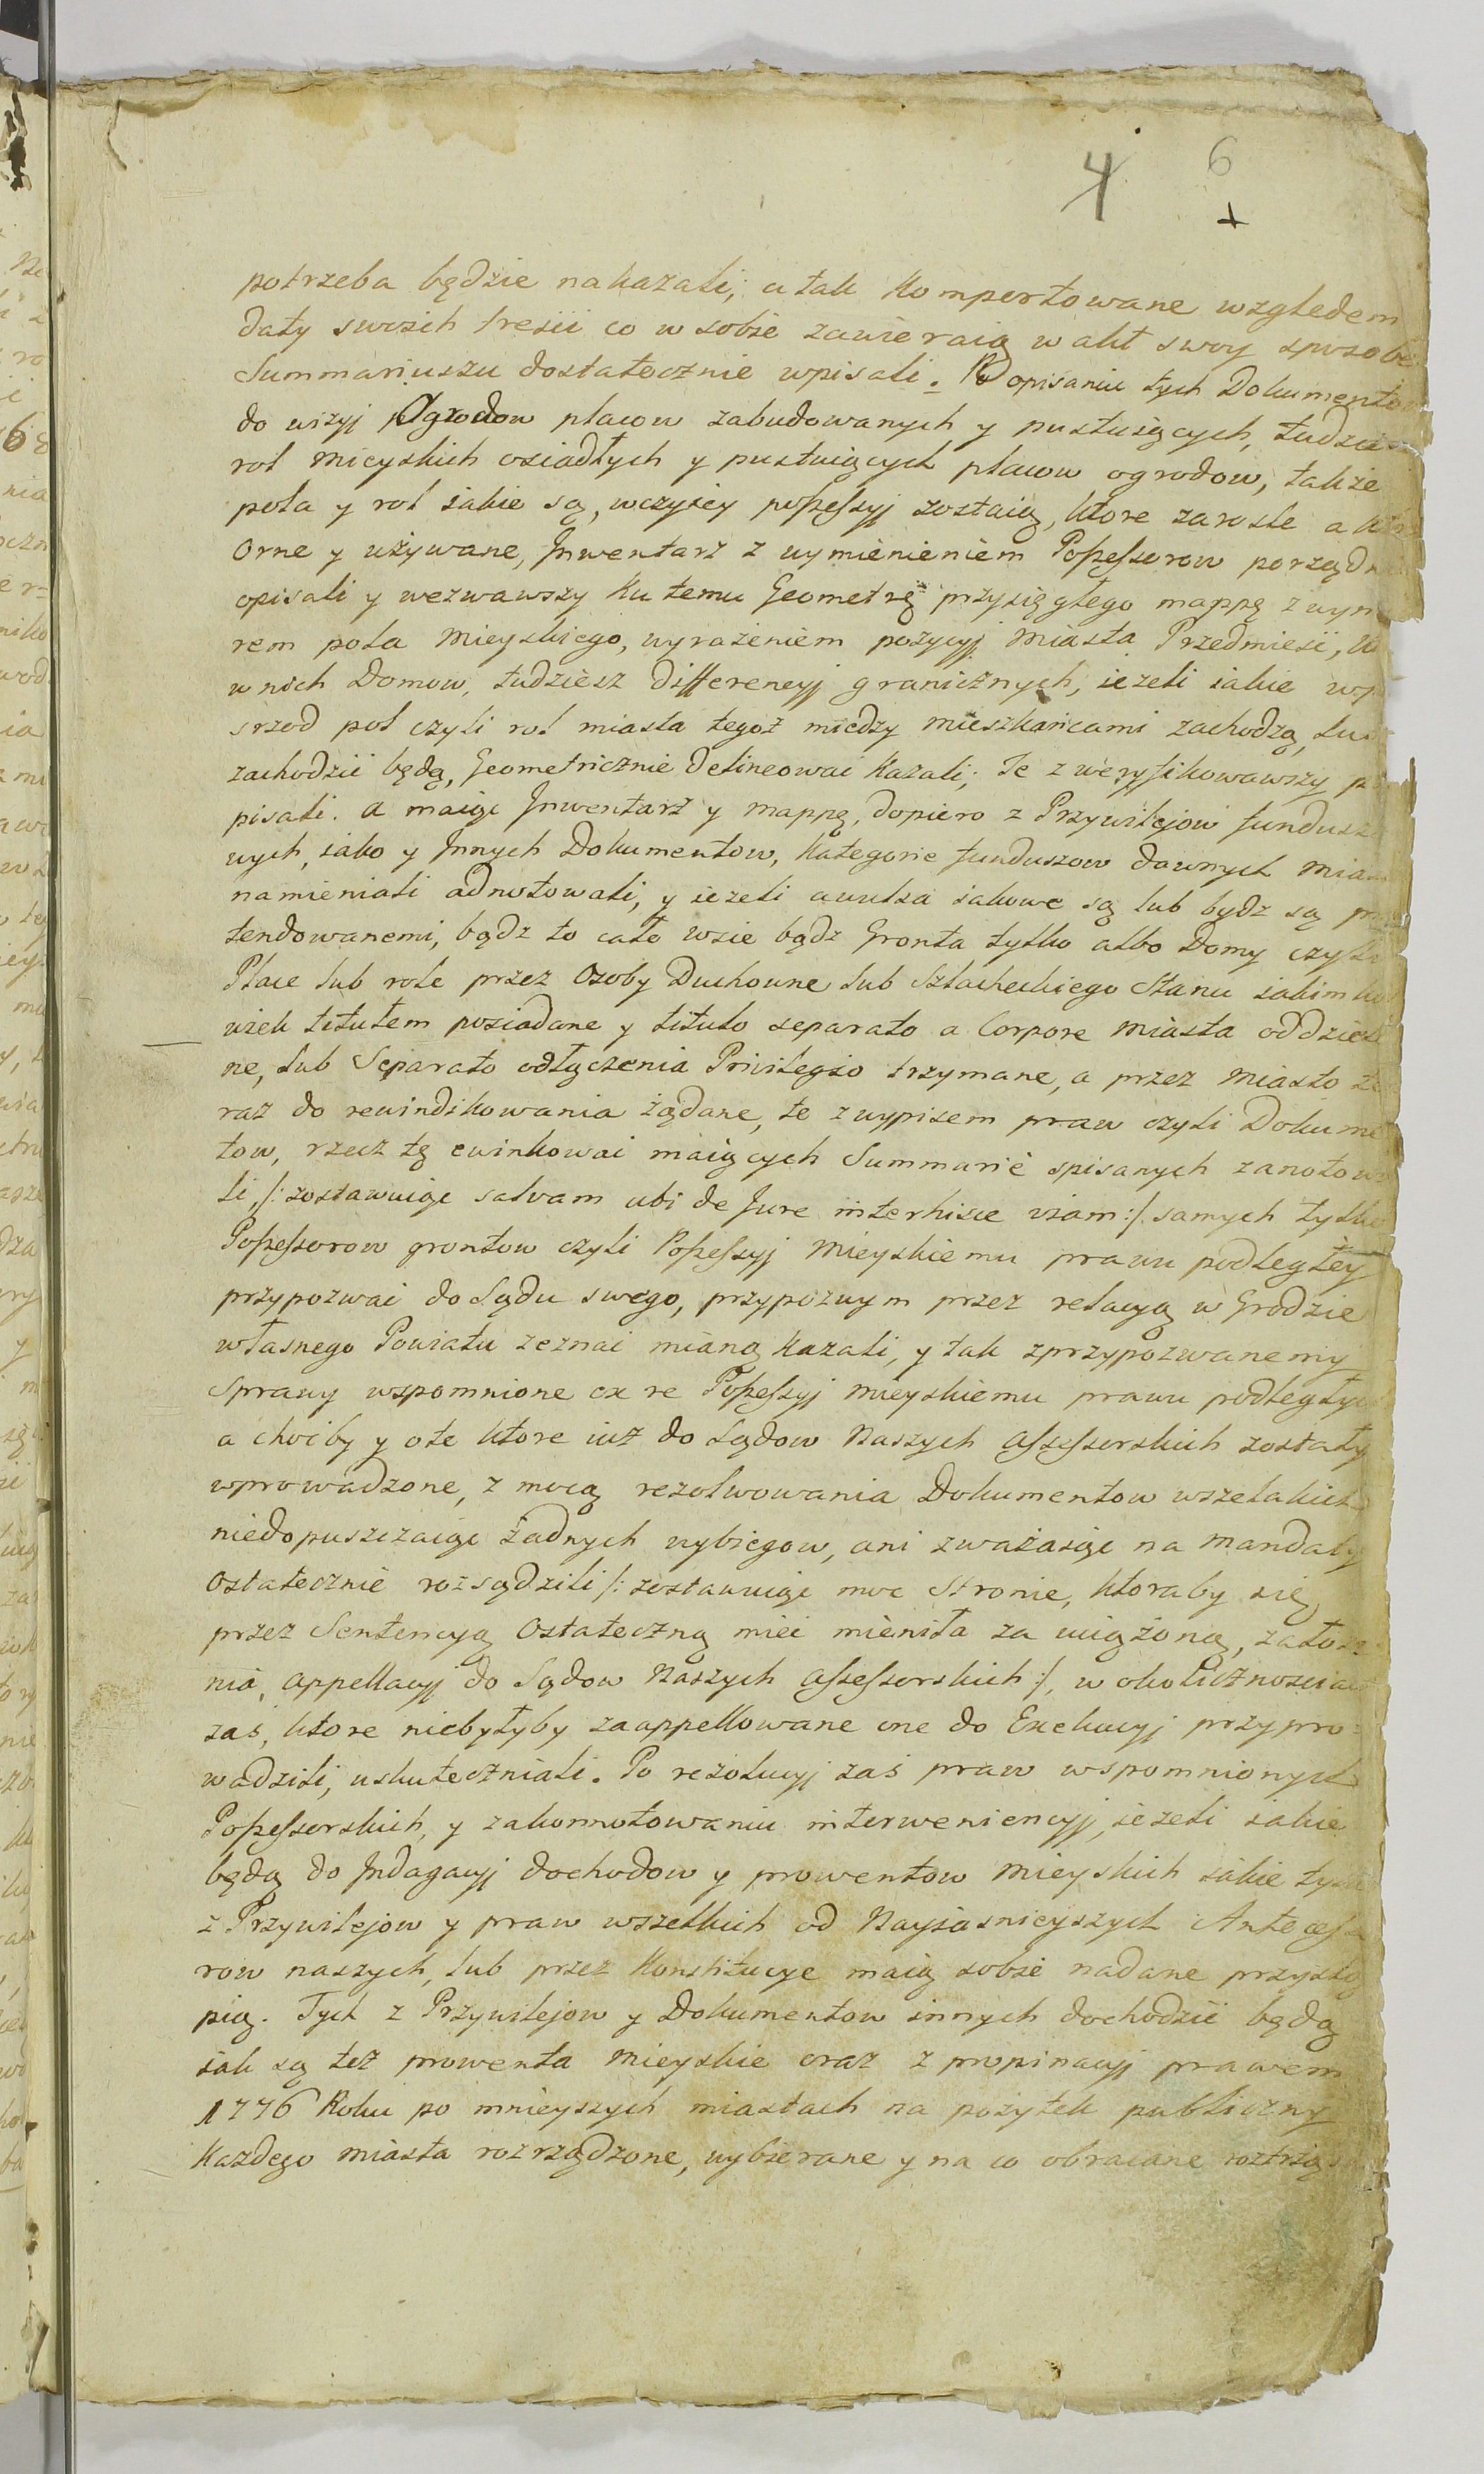 4 6
potrzeba będzie nakazali; a tak komportowane względem
daty swoich tresii co w sobie zawieraią w akt swoy sposobe
Summariuszu dostatecznie wpisali. Po opisaniu tych Dokumento
do wizyi Ogrodow placow zabudowanych y pustuiących, tudzie
rol Mieyskich osiadłych y pustuiących placow ogrodow, także
pola y rol iakie są, wczyiey possessyj zostaią, ktore zarosłe a kto
Orne y używane, Inwentarz z wymienieniem Possessorow porządn
opisali y wezwawszy ku temu Geometrę przysięgłego mappę z wym
rem pola Mieyskiego, wyrażeniem pozycyj Miasta Przedmiesci,
w nich Domow, tudziesz differencyj granicznych, ieżeli iakie wp
srzod pol czyli rol miasta tegoż między mieszkańcami zachodzą, lub
zachodzić będą, Geometricznie delineować kazali; Te zweryfikowawszy po
pisali. a maiąc Inwentarz y mappę, dopiero z Przywilejow fundusz
wych, iako y Innych Dokumentow, kategorie funduszow dawnych Mias
namieniali adnotowali, y ieżeli avulsa iakowe są lub bydz są pr
tendowanemi, bądz to całe wsie bądz Gronta tylko albo Domy czyli
Place lub role przez Osoby Duchowne lub Szlacheckiego Stanu iakimko
wiek titułem posiadane y titulo separato a Corpore Miasta oddziel
ne, lub Separato odłączenia Privilegio trzymane, a przez Miasto te
raz do rewindikowania żądane, te z wypisem praw czyli Dokume
tow, rzecz tę ewinkować maiących Summarie spisanych zanotowa
li, /: zostawuiąc salvam ubi de Jure interhisce viam :/ samych tylko
Possessorow grontow czyli Possessyj Mieyskiemu prawu podległey
przypozwać do Sądu swego, przypozwym przez relacyą w Grodzie
własnego Powiatu zeznać mianą kazali, y tak z przypozwanemy
Sprawy wspomnione ex re Possessyj mieyskiemu prawu podległy
a choćby y o te ktore iuż do Sądow Naszych Assessorskich zostały
wprowadzone, z mocą rezolwowania Dokumentow wszelakich
niedopuszczaiąc żadnych wybiegow, ani zważaiąc na Mandaty
ostatecznie rozsądzili /: zostawuiąc moc Stronie, ktoraby się
przez Sentencyą Ostateczną mieć mieniła za uciążoną, założe
nia, appellacyj do Sądow Naszych Assessorskich :/, w okolicznosciac
zaś, ktore niebyłyby zaappellowane one do Exekucyj przypro
wadzili, uskuteczniali. Po rezolucyj zaś praw wspomnionych
Possessorskich, y zakonnotowaniu interweniencyj, ieżeli iakie
będą do Indagacyj dochodow y prowentow Mieyskich iakie tylk
z Przywilejow y praw wszelkich od Nayiasnieyszych Antecess
row naszych, lub przez Konstitucye maią sobie nadane przystą
pią. Tych z Przywilejow y Dokumentow innych dochodzić będą
iak są też prowenta Mieyskie oraz z propinacyj prawem
1776 Roku po mnieyszych miastach na pożytek publiczny
każdego miasta rozrządzone, wybierane y na co obracane roztrzą